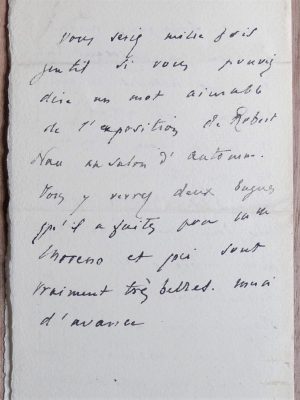 Vous seriez mille fois
gentil si vous pouviez
dire un mot aimable
de l'exposition de Robert
Nau au salon d'automne.
Vous y verrez deux bagues
qu'il a faites pour
Moreno et qui sont
vraiment très belles. Merci
d'avance